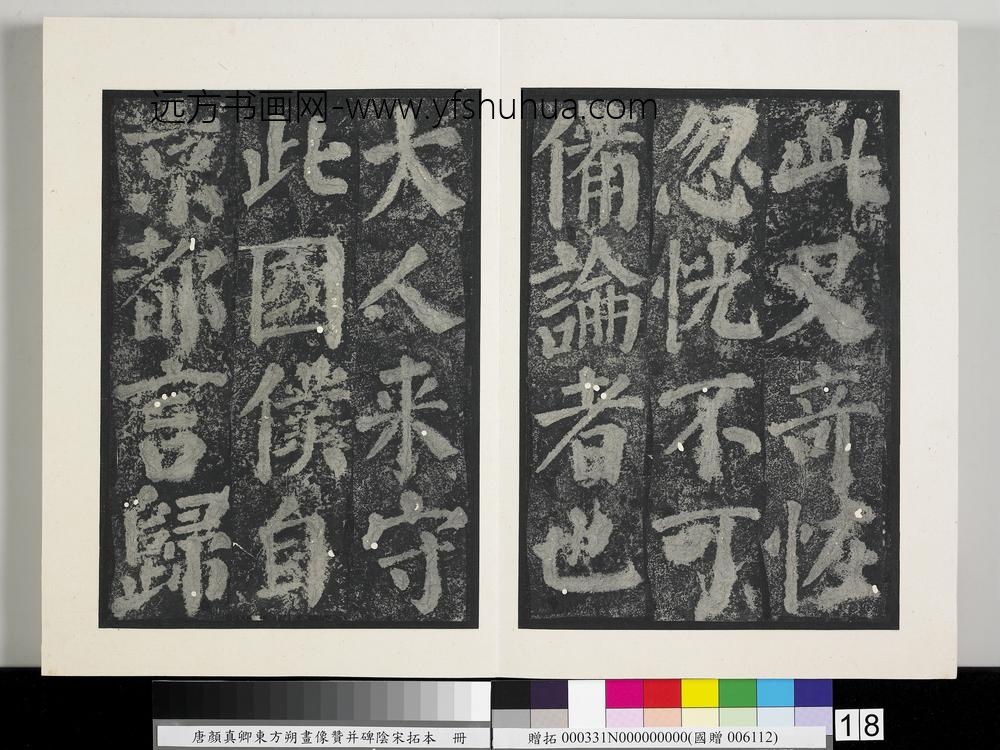 远方书画网-www.yfshuhua.com
此又奇怪
忽恍不可
備論者也
大人来守
此國僕自
京都言歸
唐顏真卿東方朔畫像贊并碑陰宋拓本 冊
贈拓 000331N000000000(國贈 006112)
18